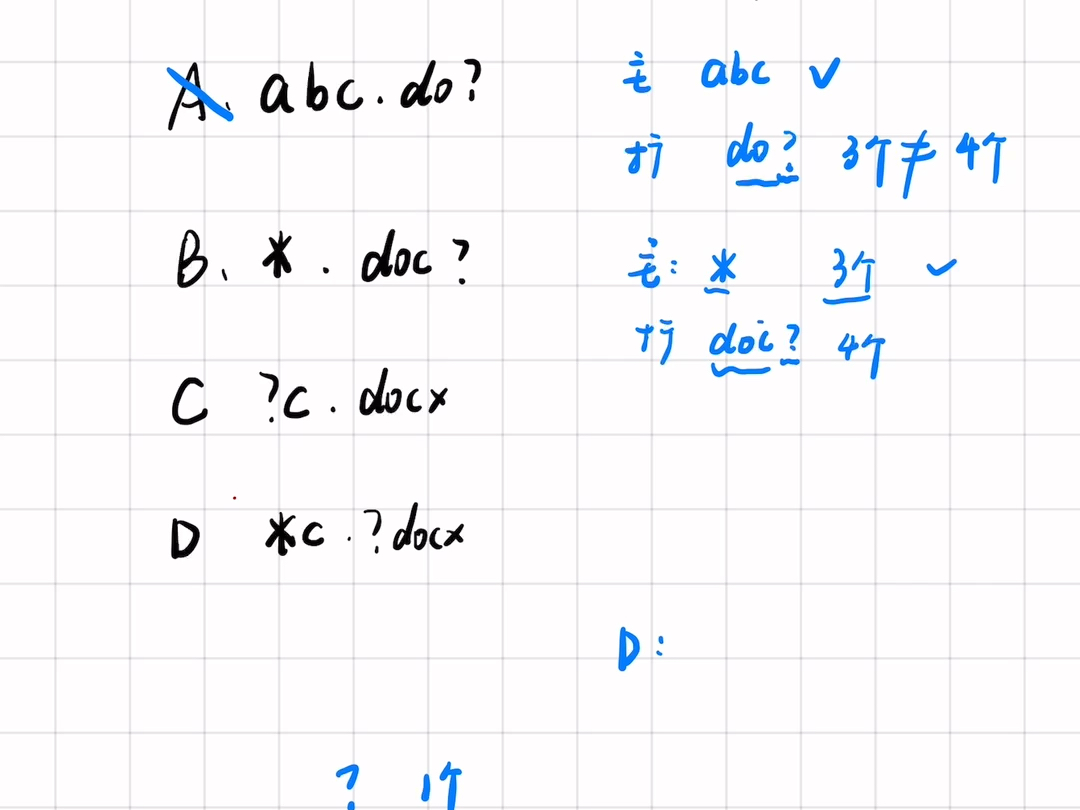 A、abc.do?
主 abc ✓
扩 do? 3个≠4个
B、*.doc?
主: * 3个 ✓
扩 doc? 4个
C ?c.docx
D *c.?docx
D:
? 1个